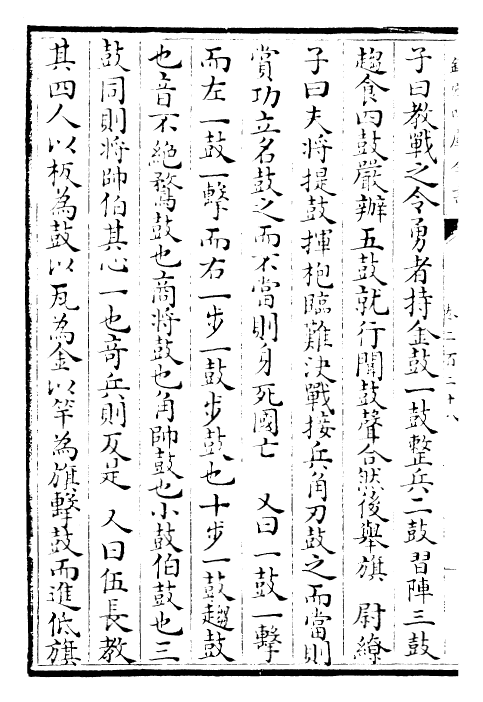 子曰教戰之令勇者持金鼓一鼓整兵二鼓習陣三鼓
趨食四鼓嚴辦五鼓就行聞鼓聲合然後舉旗　尉繚
子曰夫將提鼓揮枹臨難決戰接兵角刃鼓之而當則
賞功立名鼓之而不當則身死國亡　又曰一鼓一擊
而左一鼓一擊而右一步一鼓步鼓也十步一鼓趨鼓
也音不絶鶩鼓也商將鼓也角帥鼓也小鼓伯鼓也三
鼓同則將帥伯其心一也奇兵則反是　又曰伍長教
其四人以板為鼓以瓦為金以竿為旗擊鼓而進低旗